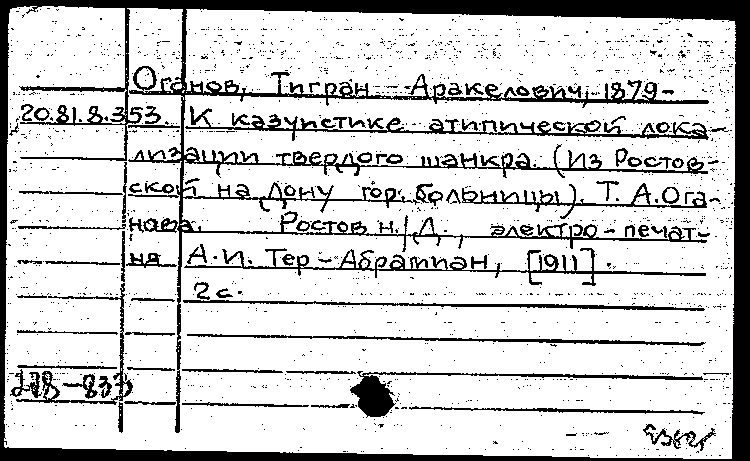 Оганов, Тигран Аракелович, 1879-
20.81.8.353. К казуистике атипической лока-
лизации твердого шанкра. (Из Ростов-
ской на Дону гор. больницы). Т. А. Ога-
нова. Ростов н./Д., электро-печат-
ня А.И. Тер-Абрамиан, [1911].
2 с.
178-833